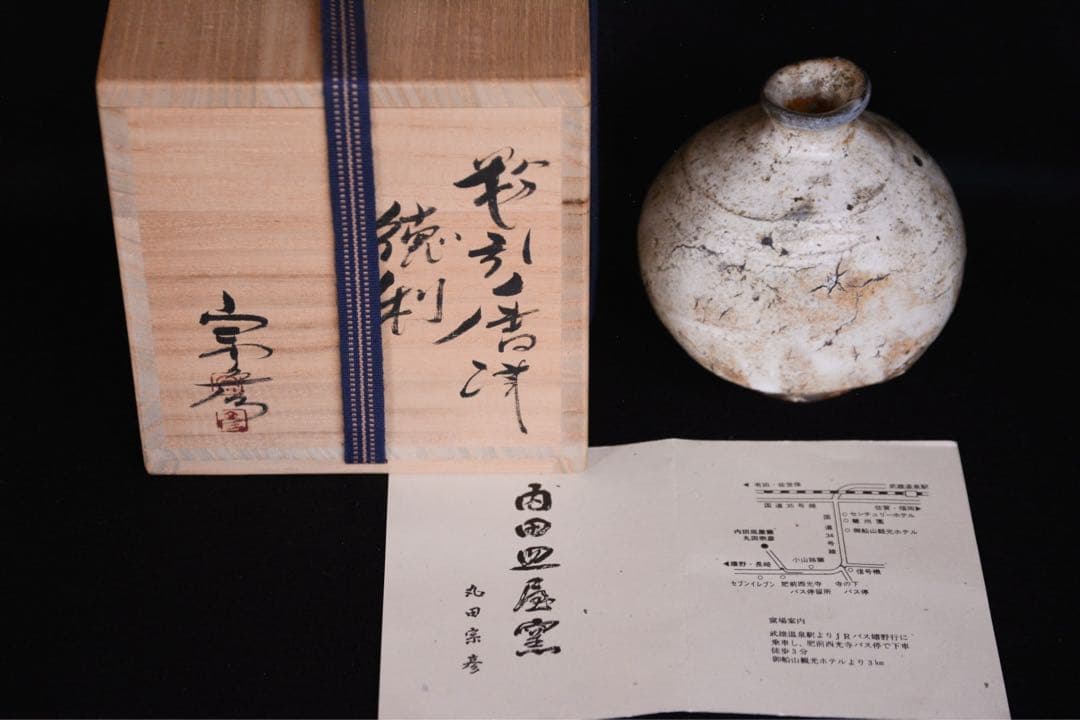 粉引唐津
徳利
宗彦
内田皿屋窯
丸田宗彦
◀有田・佐世保
武雄温泉駅
国道35号線
佐賀・福岡▶
センチュリーホテル
蘭州園
御船山観光ホテル
国道34号線
内田皿屋窯
丸田宗彦
◀嬉野・長崎
小山路窯
信号機
セブンイレブン
肥前西光寺
バス停留所
寺の下
バス停
窯場案内
武雄温泉駅よりJRバス嬉野行に
乗車し、肥前西光寺バス停で下車
徒歩3分
御船山観光ホテルより3km